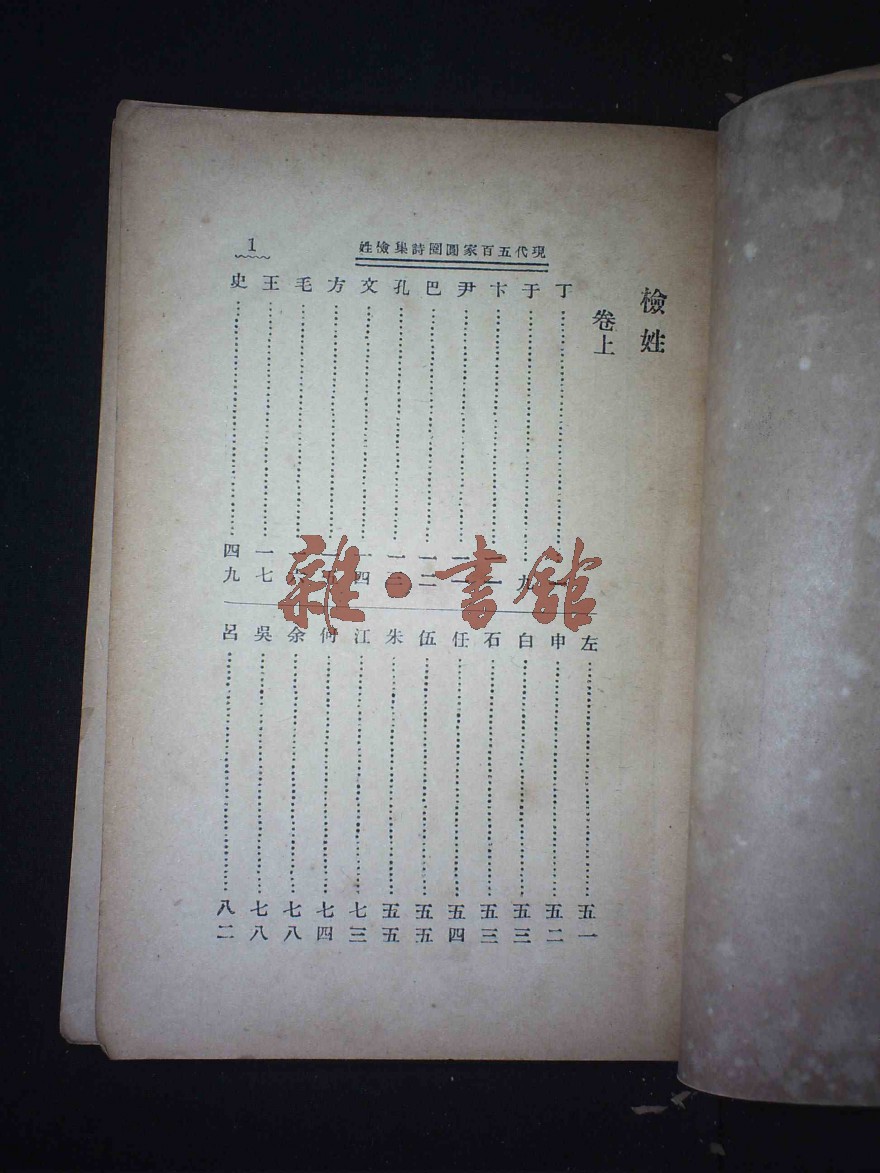 現代五百家圓圈詩集檢姓
1
檢姓
卷上
丁…一
于…九
卞…一一
尹…一一
巴…一二
孔…一三
文…一四
方…一五
毛…一六
王…一七
史…四九
左…五一
申…五二
白…五三
石…五三
任…五四
伍…五五
朱…五五
江…七三
何…七四
余…七八
吳…七八
呂…八二
雜·書館